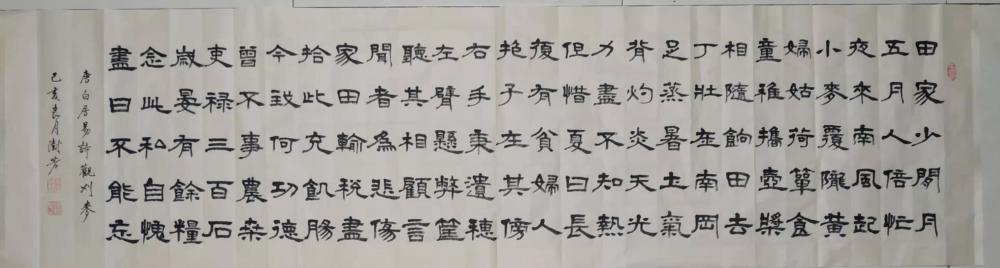 田家少閒月
五月人倍忙
夜來南風起
小麥覆隴黃
婦姑荷簞食
童稚攜壺漿
相隨餉田去
丁壯在南岡
足蒸暑土氣
背灼炎天光
力盡不知熱
但惜夏日長
復有貧婦人
抱子在其傍
右手秉遺穗
左臂懸弊筐
聽其相顧言
聞者為悲傷
家田輸稅盡
拾此充飢腸
今我何功德
曾不事農桑
吏祿三百石
歲晏有餘糧
念此私自愧
盡日不能忘
唐白居易詩觀刈麥
己亥良月